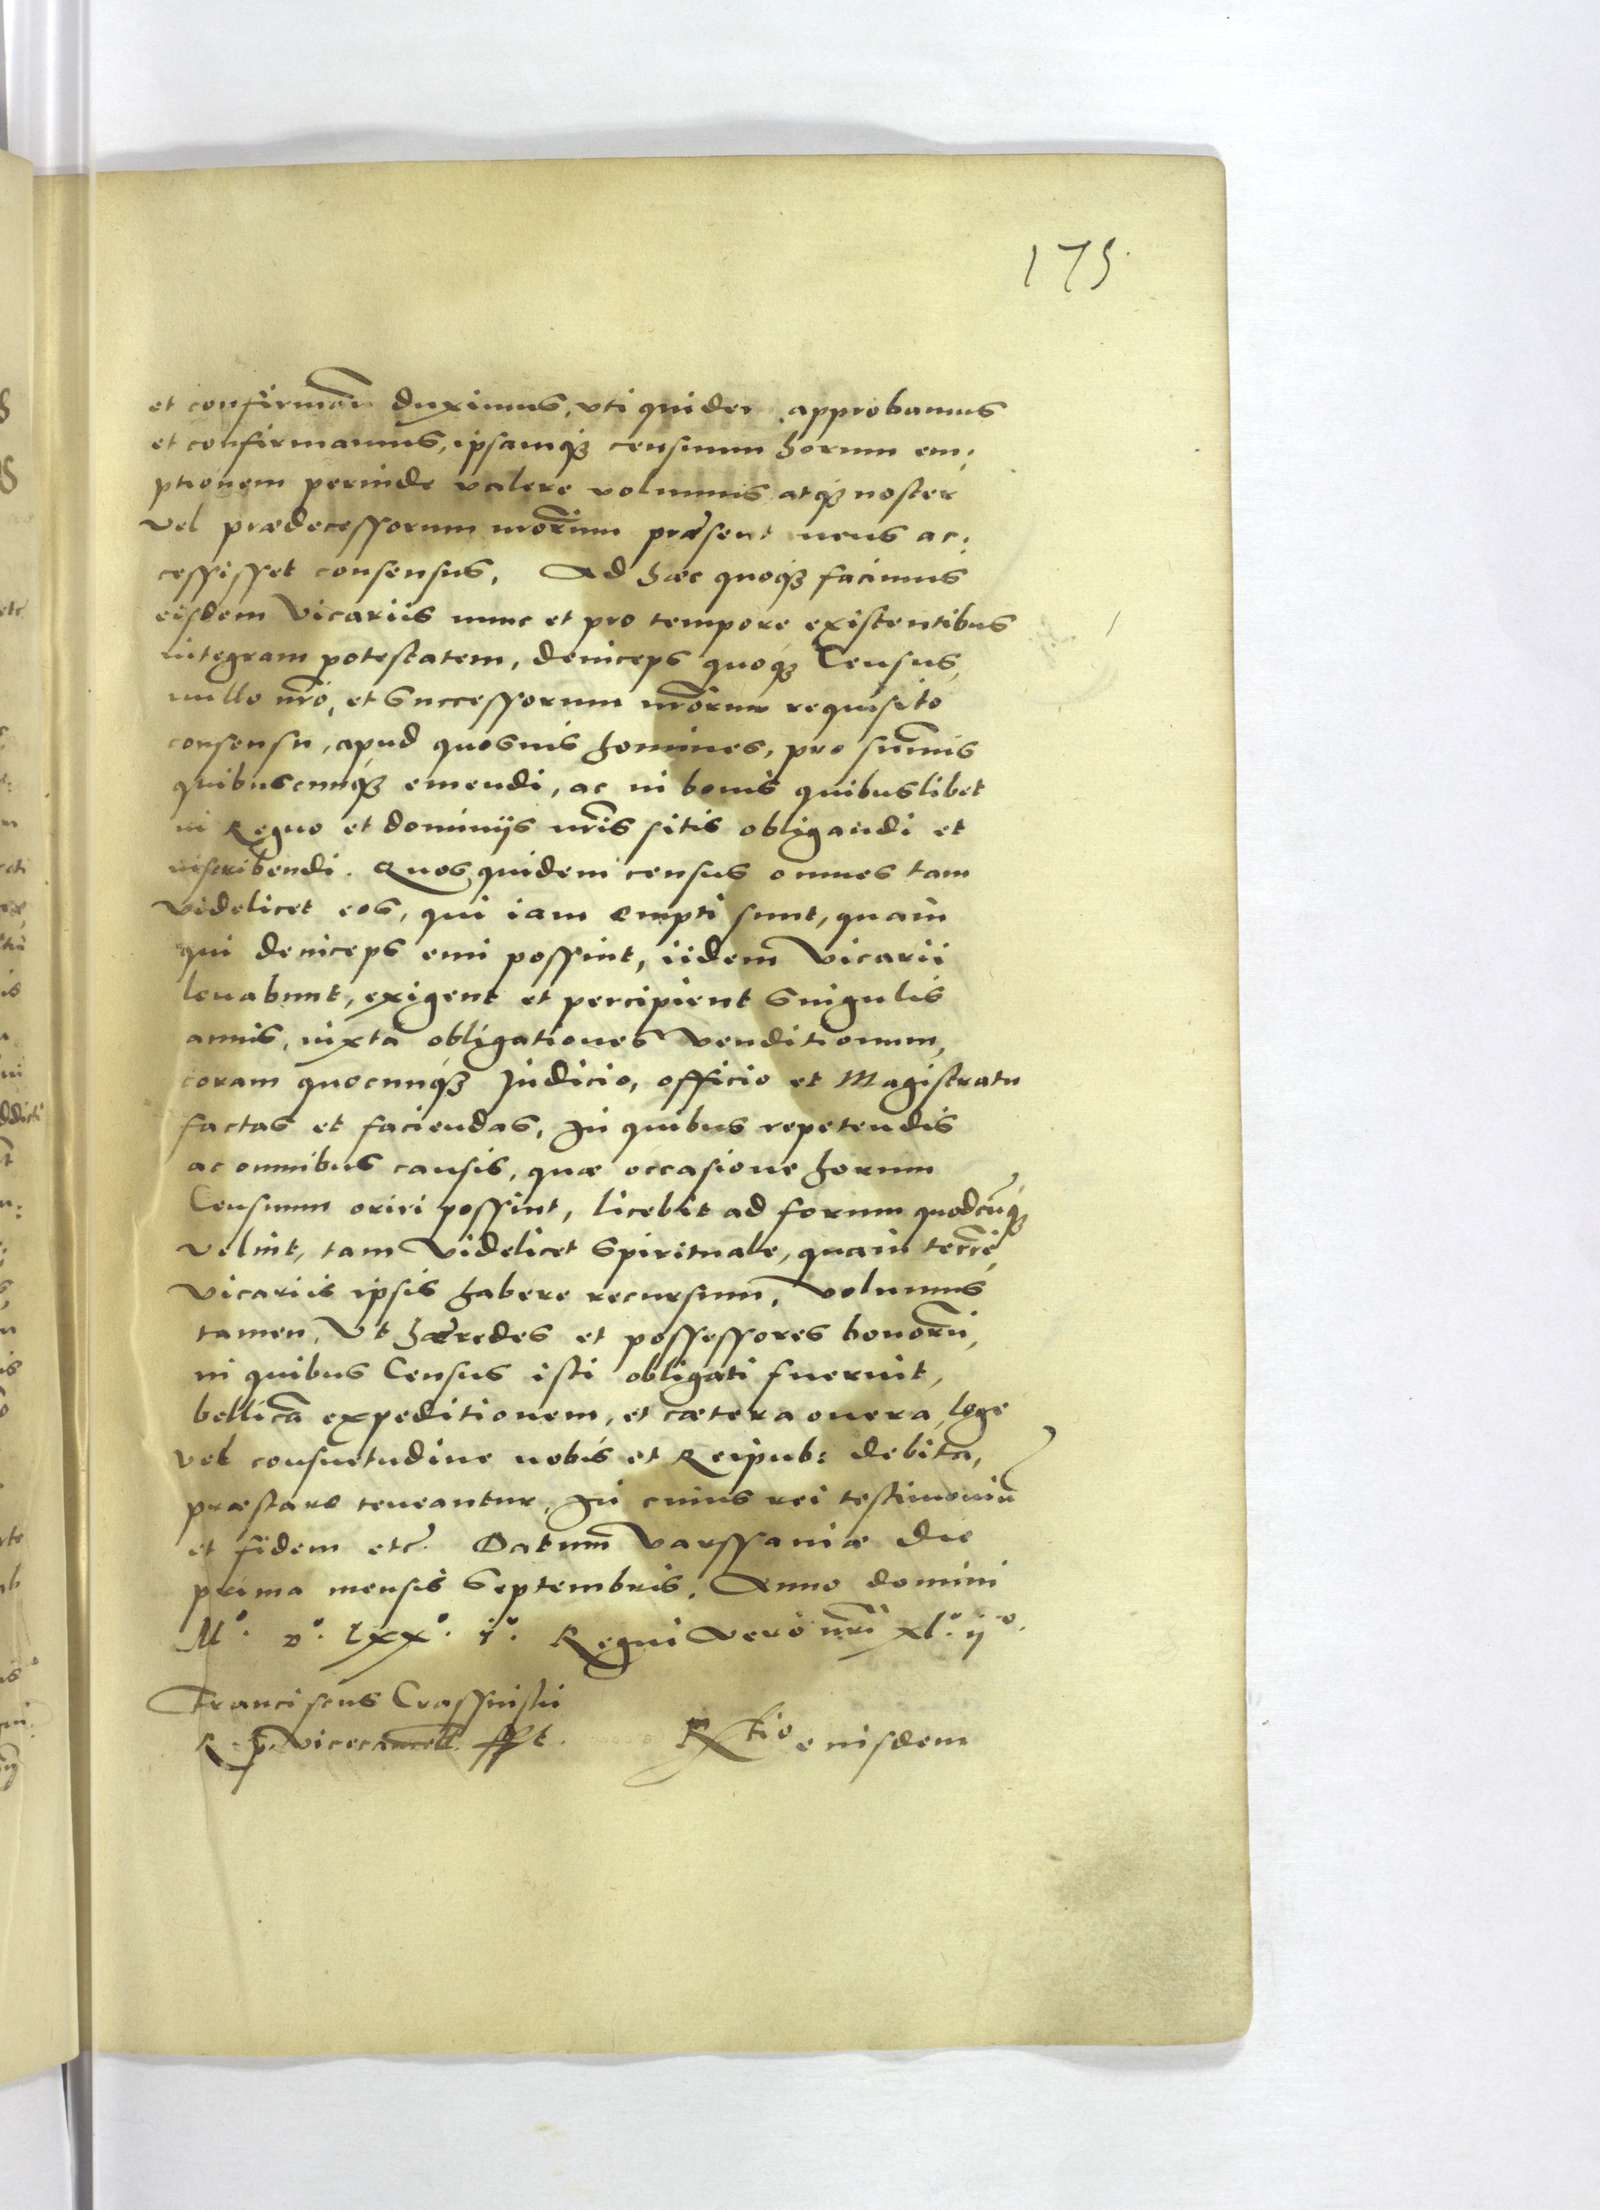 175.
et confirman duximus, uti quidem approbamus
et confirmamus, ipsamq3 censuum horum em:
ptionem perinde valere volumus atq3 noster
vel prædecessorum nrorum præsent neus ac:
cessisset consensus. Ad hæc quoq3 facimus
eisdem Vicariis nunc et pro tempore existentibus
integram potestatem, deinceps quoq3 Census,
nullo nro, et Successorum nrorum requisito
consensu, apud quosuis homines, pro sumis
quibuscunq3 emendi, ac in bonis quibuslibet
in Regno et dominijs nris sitis obligandi et
inscribendi. Quos quidem census omnes tam
videlicet eos, qui iam empti sunt, quam
qui deinceps emi possint, iidem Vicarii
leuabunt, exigent et percipient Singulis
annis, iuxta obligationes Venditionum,
coram quocunq3 Judicio, officio et Magistratu
factas et faciendas. In quibus repetendis
ac omnibus causis, quæ occasione horum
Censuum oriri possint, licebit ad forum quodcuq3
velint, tam Videlicet Spirituale, quam terre,
vicariis ipsis habere recursum, Volumus
tamen, Ut hæredes et possessores bonoru,
in quibus Census isti obligati fuerint,
bellica expeditionem, et cætera onera lege
vel consuetudine nobis et Reipub: debita,
præstare teneantur. In cuius rei testimoniu
et fidem etc. Datum Varssauiæ die
prima mensis Septembris. Anno domini
Mº. Dº. lxxº. jº. Regni Vero nri xlº. ijº.
Franciscus Crassinski
R. P. Vicecancell. sspt.
Rtio eiusdem